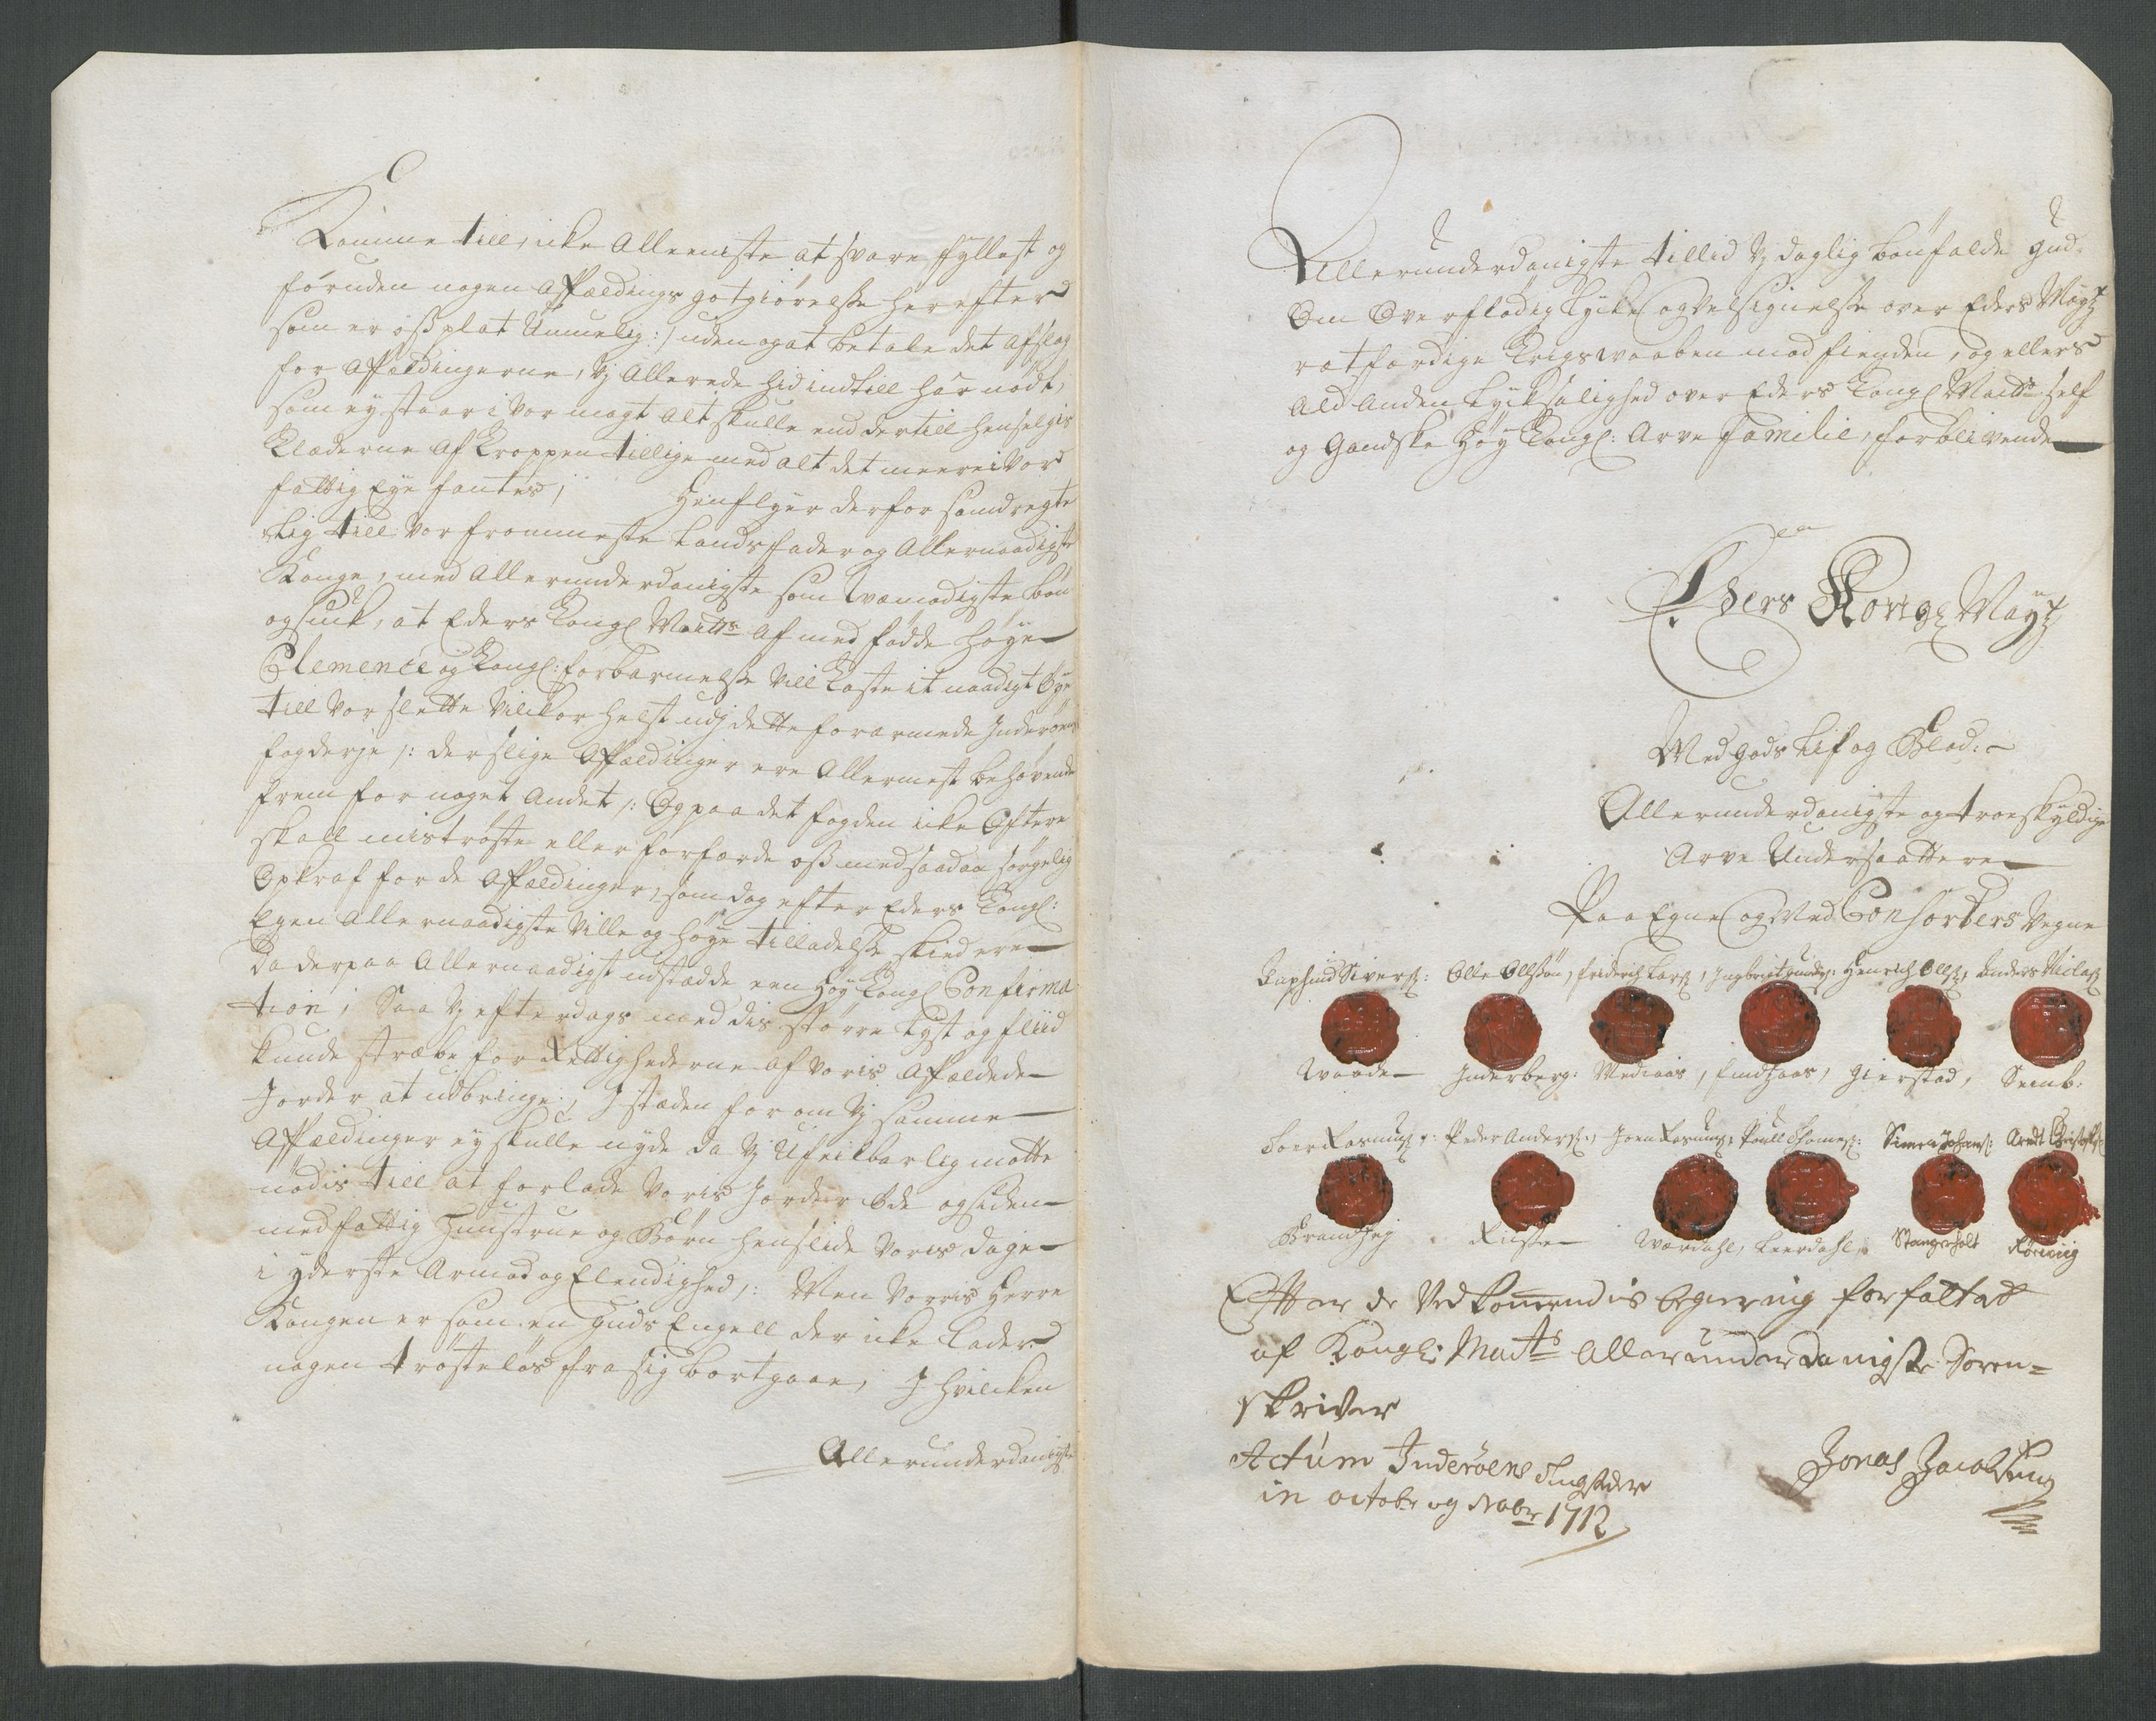 Komme till, icke Alleeniste at svare fyllest og
foruden nogen Affældings gotgiørelse herefter
som er oss plat Umuelig :/ uden og at betale det afslag
for Affældingerne, Vj Allerede hid indtill har nødt,
som ey staar i vor magt alt skulle end dertill henselgis
Klæderne af Kroppen tillige med alt det meere i Vor
fattig Eye fantes, Henflyer derfor samdregte
lig till Vor frommeste Landsfader og Allernaadigste
Konge, med Allerunderdanigste som Weemodigste bøn
og suck, at Eders Kongl Maitts af medfødde høye
Clemence og Kongl: forbarmelse vill Kaste it naadigt Øye
till Vor slette Vilckor helst udj dette forarmede Inderøens
fogderje /: der slige Affældinger ere Allermest behøvende
frem for noget Andet /: Og paa det fogden icke Oftere
skall mistrøste eller forfærde oss med saadan sørgelig
Opkraf for de Affældinger, som dog efter Eders Kongl:
Egen Allernaadigste Ville og høye tilladelse skied ere
da derpaa Allernaadigst udstædde een høy Kongl Confirma
tion, Saa Vj efterdags med dis større Lyst og fliid
kunde stræbe for Rettighederne af Voris Affældede
Jorder at udbringe, J stæden for om Vj samme
Affældinger ey skulle nyde da Vj Ufeilbarlig motte
nødis till at forlade Voris Jorder Øde og siden
med fattig Huustrue og Børn henslide Voris dage
i yderste Armod og Elendighed, Men Vorris Herre
Kongen er som en Guds Engell der icke lader
nogen trøsteløs fra sig bortgaae, J hvilcken
Allerunderdanigste
Allerunderdanigste tillid Vj daglig bønfalde Gud
Om Overflødig Lycke og Velsignelse over Eders Mayts
retfærdige Krigsvaaben mod fienden, og ellers
Ald Anden Lycksalighed over Eders Kongl Maitts self
og Gandske Høy Kongl: Arve Familie, forblivende
Eders Kongl Mayts
Med Gods Lif og Blod:
Allerunderdanigste og troeskyldige
Arve Undersaattere
Paa Egne og Med Consorters Vegne
Siversz: Olle Ollsøn, friderich Larsz, Ingbrigt Henrich Ollsz, Anders Niclasz
Waade Inderberg: Gierstad,
Rasmusz: Peder Andersz, Joen Rasmusz, Poull Thomesz: Simen Johansz: Arnt
Wærdahl, Leerdahl, Stangerholt Rørviig
Efter de Vedkommendis begiering forfattet
af Kongl: Maits Allerunderdanigste Soren-
skriver
Actum Inderøens Tingsteder
in octobr og Nobr 1712
Jonas Jacobsen